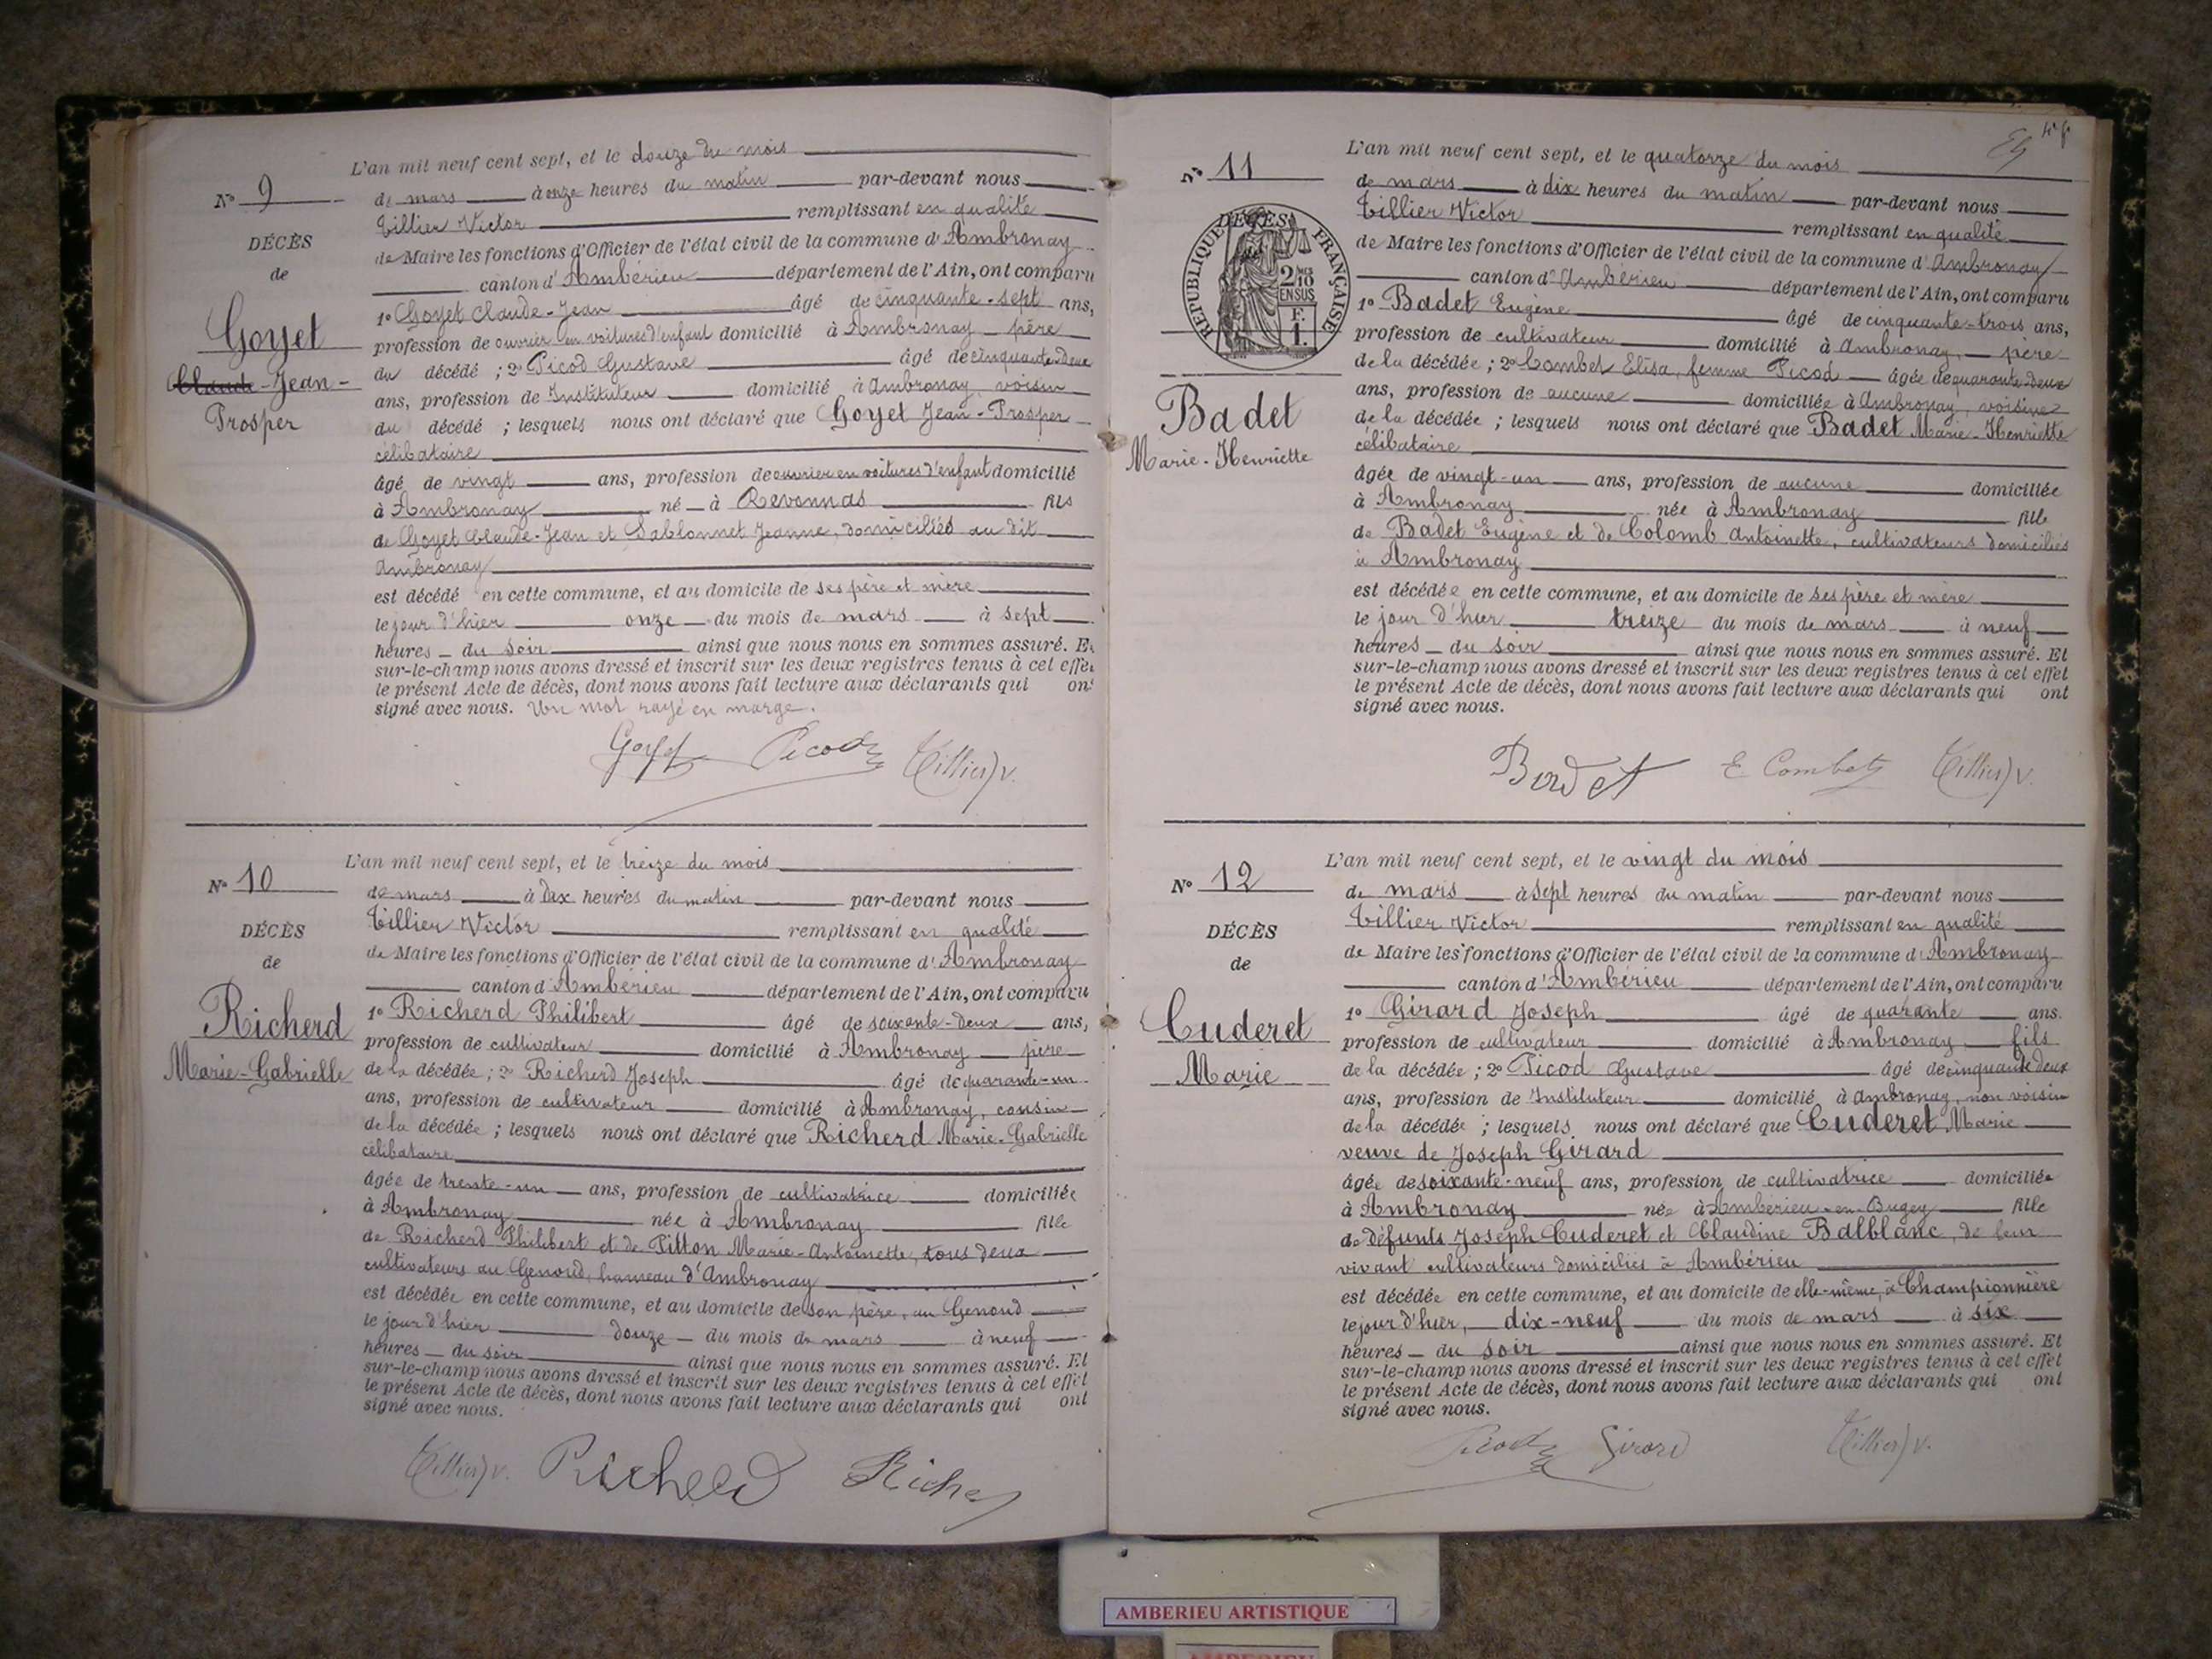 L'an mil neuf cent sept, et le douze du mois
N° 9
de mars à onze heures du matin par-devant nous
Tillier Victor remplissant en qualité
DÉCÈS
de Maire les fonctions d'Officier de l'état civil de la commune d'Ambronay
de
canton d'Ambérieu département de l'Ain, ont comparu
1° Goyet Claude-Jean âgé de cinquante-sept ans,
Goyet
profession de ouvrier en voitures d'enfant domicilié à Ambronay père
Claude-Jean-
du décédé ; 2° Picod Gustave âgé de cinquante-deux
Prosper
ans, profession de Instituteur domicilié à Ambronay voisin
du décédé ; lesquels nous ont déclaré que Goyet Jean-Prosper
célibataire
âgé de vingt ans, profession de ouvrier en voitures d'enfant domicilié
à Ambronay né à Revonnas fils
de Goyet Claude-Jean et Sablonnet Jeanne, domiciliés au dit
Ambronay
est décédé en cette commune, et au domicile de ses père et mère
le jour d'hier onze du mois de mars à sept
heures du soir ainsi que nous nous en sommes assuré. Et
sur-le-champ nous avons dressé et inscrit sur les deux registres tenus à cet effet
le présent Acte de décès, dont nous avons fait lecture aux déclarants qui ont
signé avec nous. Un mot rayé en marge.
Goyet Picod Tillier V.
L'an mil neuf cent sept, et le treize du mois
N° 10
de mars à dix heures du matin par-devant nous
Tillier Victor remplissant en qualité
DÉCÈS
de Maire les fonctions d'Officier de l'état civil de la commune d'Ambronay
de
canton d'Ambérieu département de l'Ain, ont comparu
Richerd
1° Richerd Philibert âgé de soixante-deux ans,
profession de cultivateur domicilié à Ambronay père
Marie-Gabrielle
de la décédée ; 2° Richerd Joseph âgé de quarante-un
ans, profession de cultivateur domicilié à Ambronay, cousin
de la décédée ; lesquels nous ont déclaré que Richerd Marie-Gabrielle
célibataire
âgée de trente-un ans, profession de cultivatrice domiciliée
à Ambronay née à Ambronay fille
de Richerd Philibert et de Pitton Marie-Antoinette, tous deux
cultivateurs au Genoud, hameau d'Ambronay
est décédée en cette commune, et au domicile de son père, au Genoud
le jour d'hier douze du mois de mars à neuf
heures du soir ainsi que nous nous en sommes assuré. Et
sur-le-champ nous avons dressé et inscrit sur les deux registres tenus à cet effet
le présent Acte de décès, dont nous avons fait lecture aux déclarants qui ont
signé avec nous.
Tillier V. Richerd Richer
L'an mil neuf cent sept, et le quatorze du mois
N° 11
de mars à dix heures du matin par-devant nous
Tillier Victor remplissant en qualité
DÉCÈS
de
RÉPUBLIQUE FRANÇAISE
2/10 EN SUS
F. 1.
de Maire les fonctions d'Officier de l'état civil de la commune d'Ambronay
canton d'Ambérieu département de l'Ain, ont comparu
1° Badet Eugène âgé de cinquante-trois ans,
profession de cultivateur domicilié à Ambronay, père
de la décédée ; 2° Combet Elisa, femme Picod âgée de quarante-deux
ans, profession de aucune domiciliée à Ambronay, voisine
Badet
de la décédée ; lesquels nous ont déclaré que Badet Marie-Henriette
Marie-Henriette
célibataire
âgée de vingt-un ans, profession de aucune domiciliée
à Ambronay née à Ambronay fille
de Badet Eugène et de Colomb Antoinette, cultivateurs domiciliés
à Ambronay
est décédée en cette commune, et au domicile de ses père et mère
le jour d'hier treize du mois de mars à neuf
heures du soir ainsi que nous nous en sommes assuré. Et
sur-le-champ nous avons dressé et inscrit sur les deux registres tenus à cet effet
le présent Acte de décès, dont nous avons fait lecture aux déclarants qui ont
signé avec nous.
Badet E Combet Tillier V.
L'an mil neuf cent sept, et le vingt du mois
N° 12
de mars à sept heures du matin par-devant nous
Tillier Victor remplissant en qualité
DÉCÈS
de Maire les fonctions d'Officier de l'état civil de la commune d'Ambronay
de
canton d'Ambérieu département de l'Ain, ont comparu
1° Girard Joseph âgé de quarante ans.
Cuderet
profession de cultivateur domicilié à Ambronay fils
Marie
de la décédée ; 2° Picod Gustave âgé de cinquante deux
ans, profession de Instituteur domicilié à Ambronay, non voisin
de la décédée ; lesquels nous ont déclaré que Cuderet Marie
veuve de Joseph Girard
âgée de soixante-neuf ans, profession de cultivatrice domiciliée
à Ambronay née à Ambérieu-en-Bugey fille
de défunts Joseph Cuderet et Claudine Balblanc, de leur
vivant cultivateurs domiciliés à Ambérieu
est décédée en cette commune, et au domicile de elle-même, à Championnière
le jour d'hier, dix-neuf du mois de mars à six
heures du soir ainsi que nous nous en sommes assuré. Et
sur-le-champ nous avons dressé et inscrit sur les deux registres tenus à cet effet
le présent Acte de décès, dont nous avons fait lecture aux déclarants qui ont
signé avec nous.
Picod Girard Tillier V.
AMBERIEU ARTISTIQUE
AMBERIEU